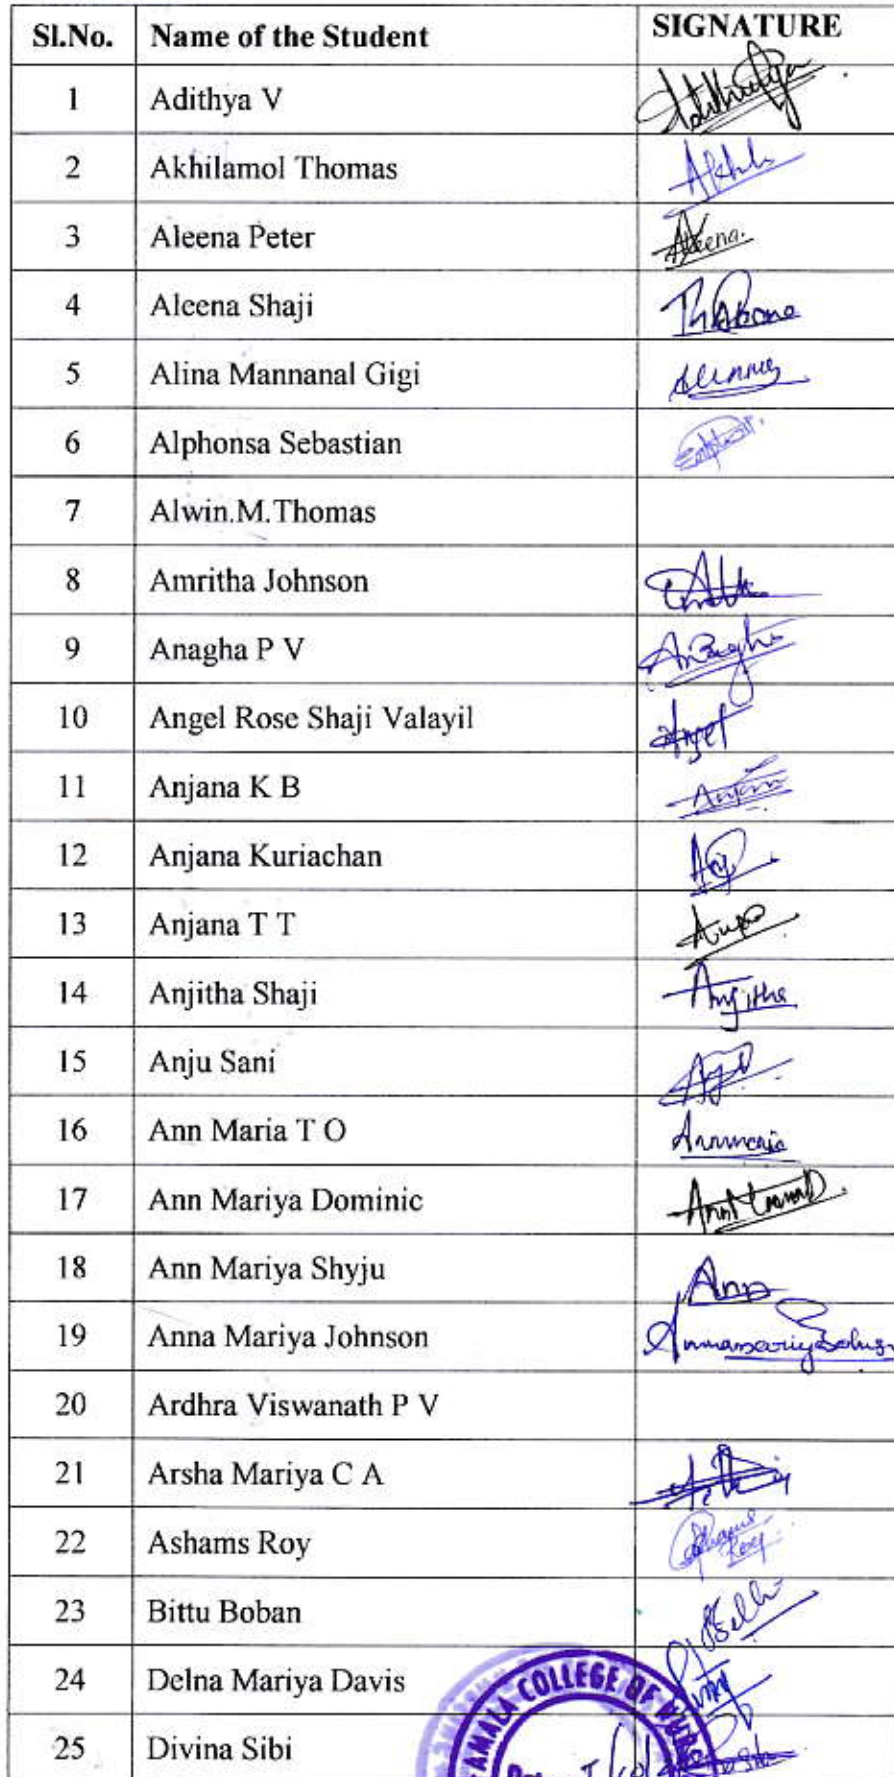 Sl.No. Name of the Student SIGNATURE
1 Adithya V
2 Akhilamol Thomas
3 Aleena Peter Aleena.
4 Aleena Shaji
5 Alina Mannanal Gigi
6 Alphonsa Sebastian
7 Alwin.M.Thomas
8 Amritha Johnson
9 Anagha P V Anagha
10 Angel Rose Shaji Valayil Angel
11 Anjana K B
12 Anjana Kuriachan
13 Anjana T T
14 Anjitha Shaji Anjitha
15 Anju Sani
16 Ann Maria T O Annmaria
17 Ann Mariya Dominic
18 Ann Mariya Shyju Ann
19 Anna Mariya Johnson
20 Ardhra Viswanath P V
21 Arsha Mariya C A
22 Ashams Roy Ashams Roy
23 Bittu Boban
24 Delna Mariya Davis
25 Divina Sibi
AMALA COLLEGE OF NURS